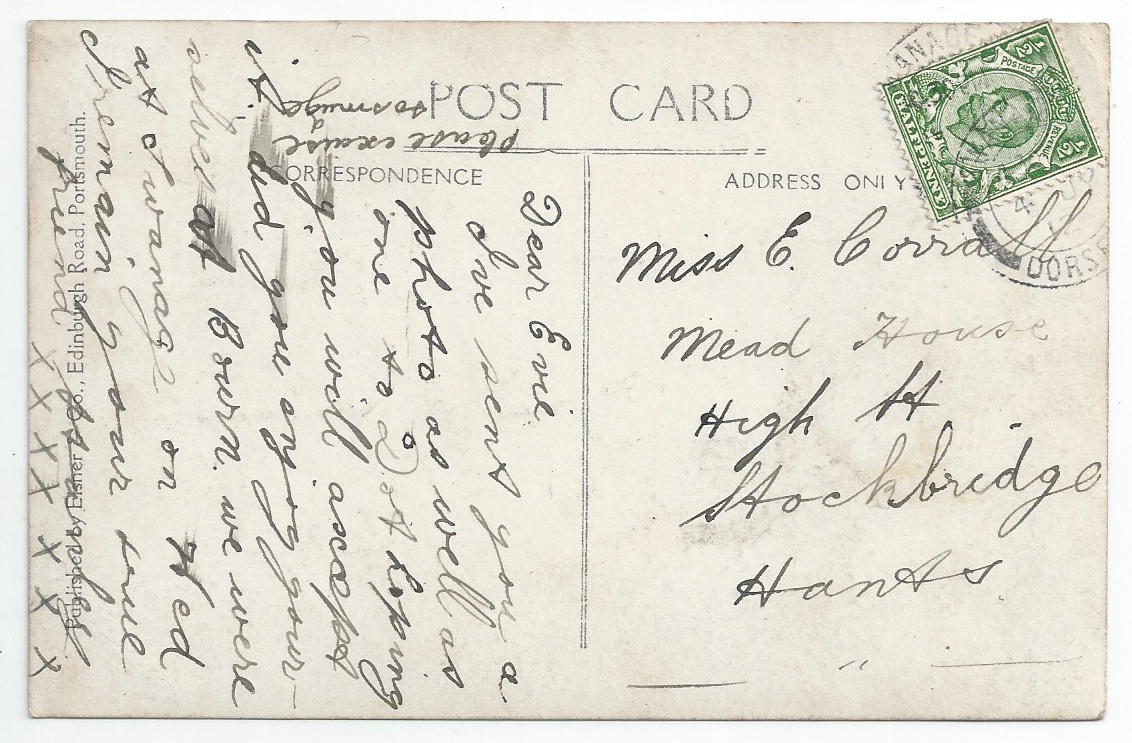 POST CARD
please excuse
smuge
CORRESPONDENCE
ADDRESS ONLY
Dear Evie
I've sent you a
photo as well as
one to Dot hoping
you will ascept
it did you enjoy your-
selves at Bourn. we were
at Swanage on Wed
I remain your true
friend
x x x x x x x
Miss E. Corrall
Mead House
High St
Stockbridge
Hants
Published by Elsner & Co., Edinburgh Road, Portsmouth.
POSTAGE
REVENUE
1/2
1/2
HALFPENNY
ANAGE
4 JY
DORSE